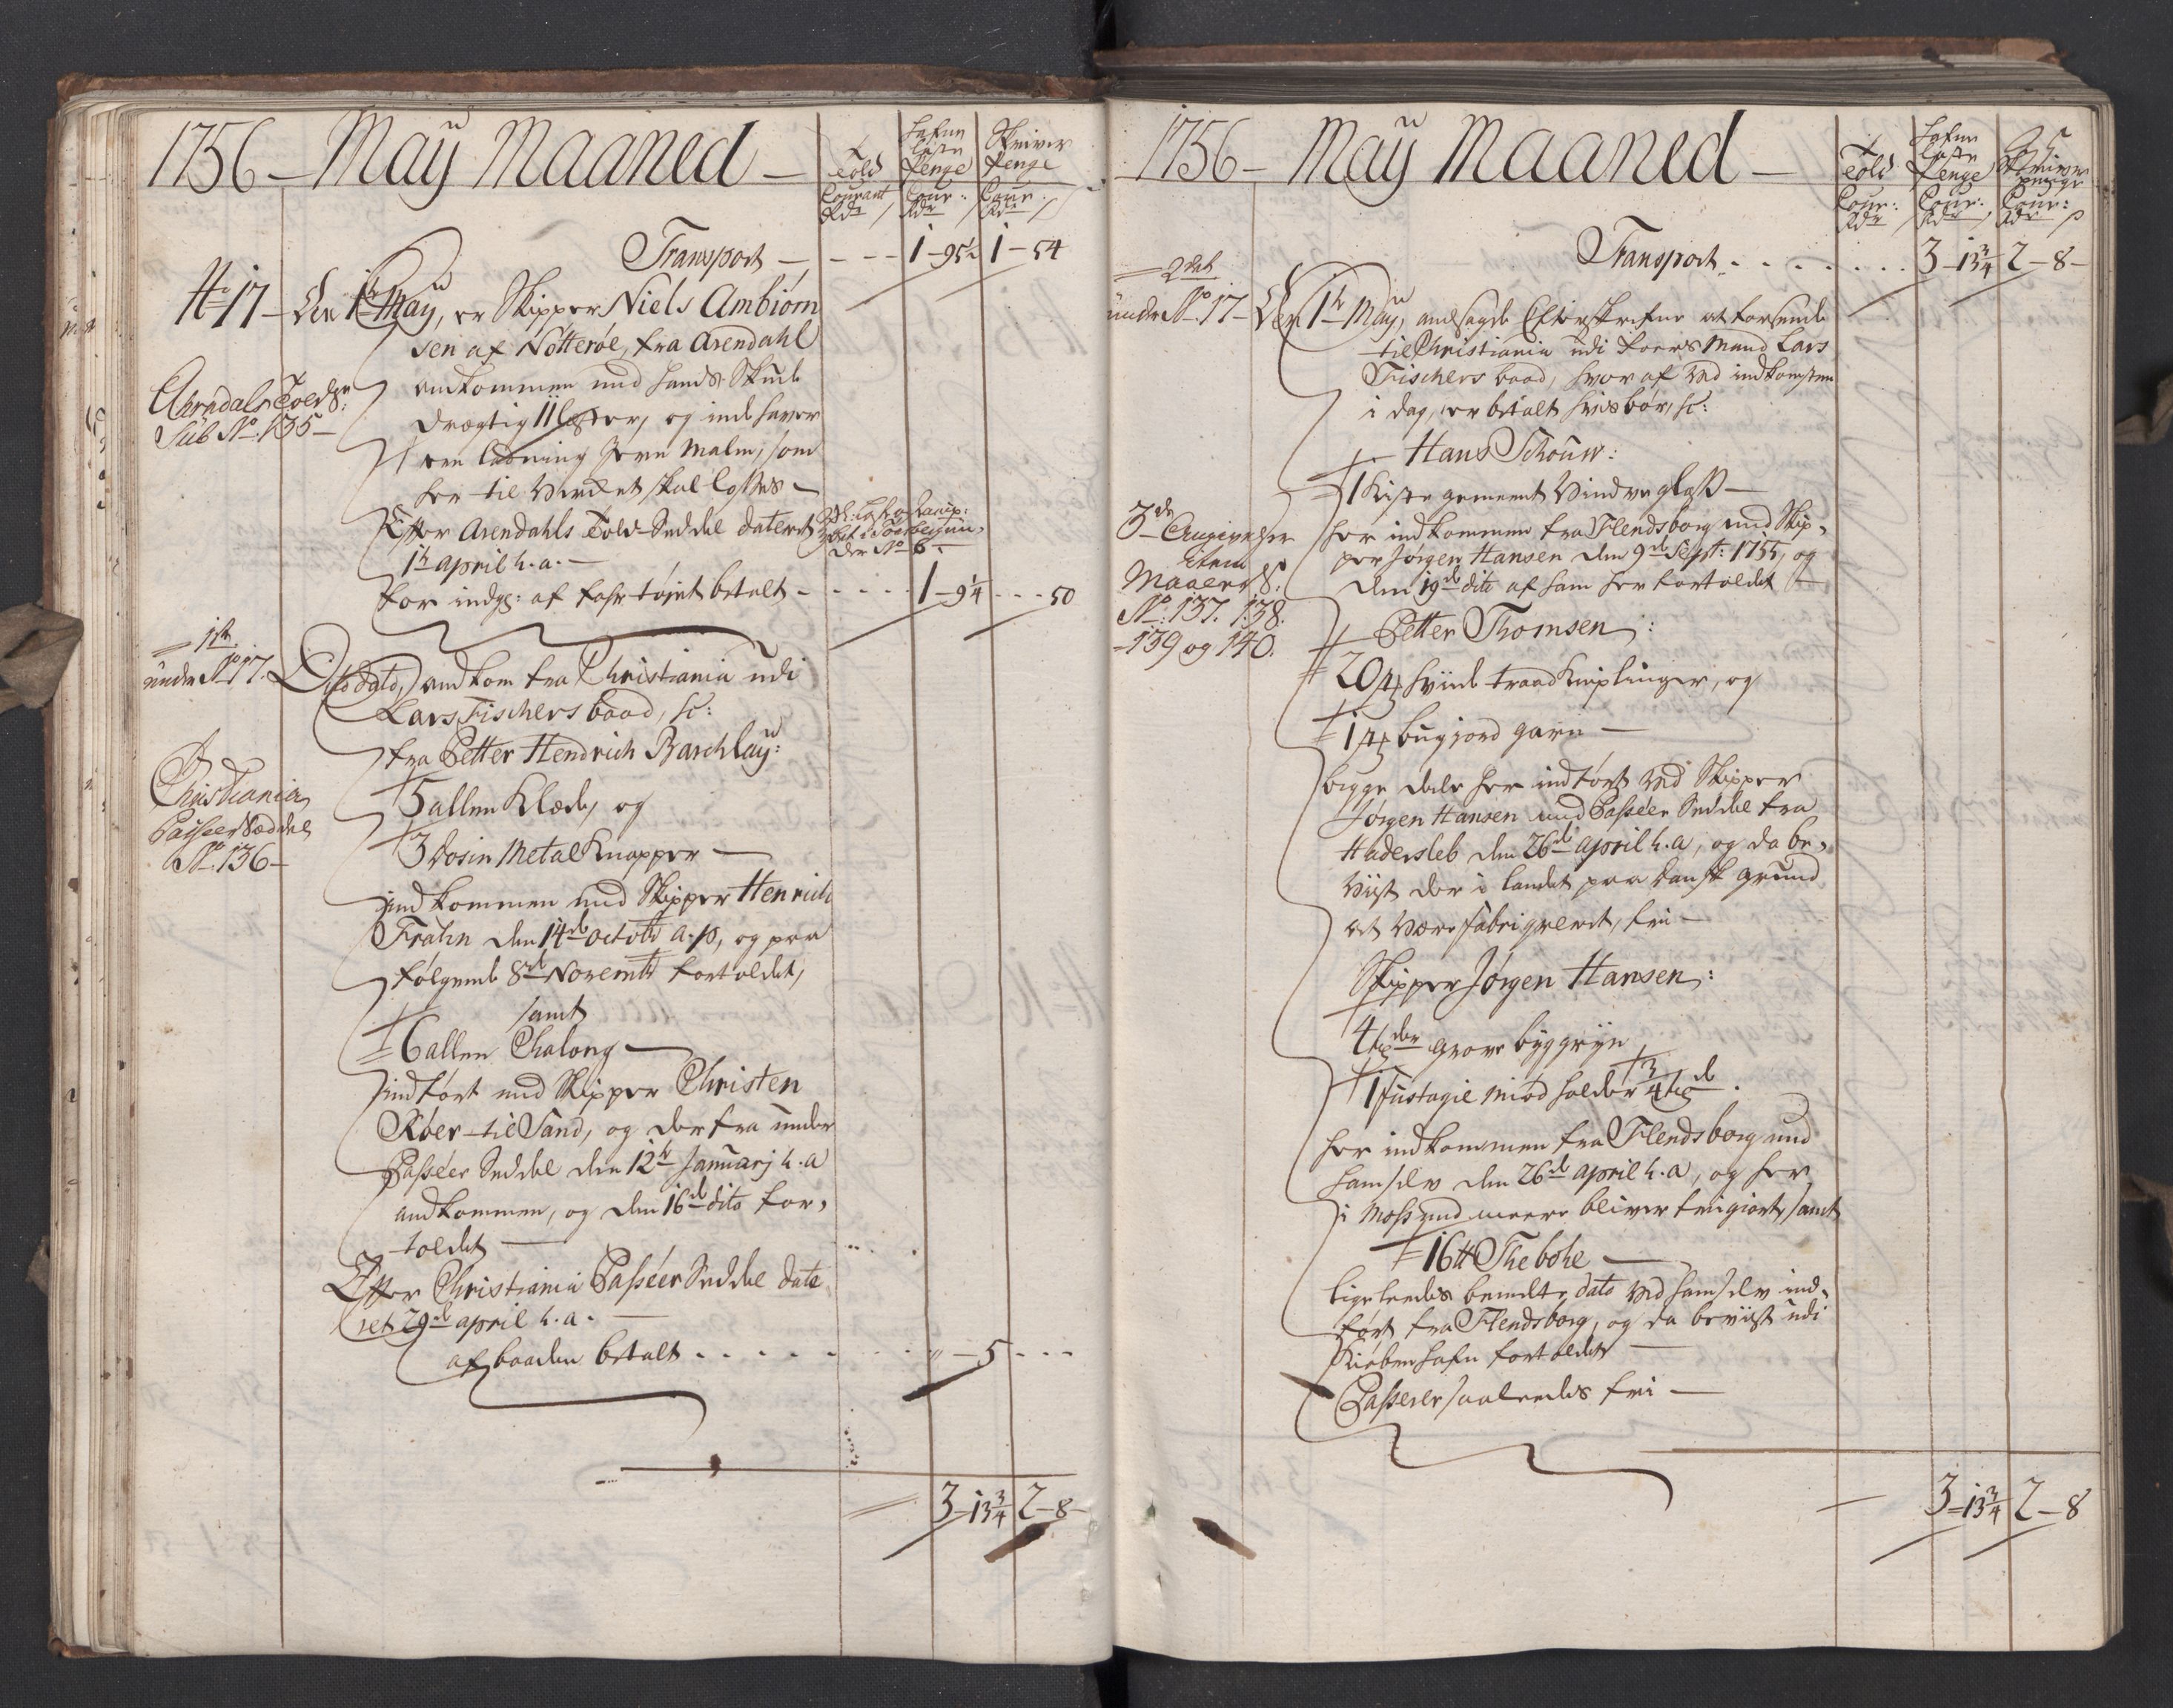 1756 – Maÿ Maaned –
Told
Courant
Rdr
Hafne
Laste
Penge
Cour:
Rdr
Skriver
Penge
Cour:
Rdr
Transport – – – – 1–95½ 1–54
No 17 – Den 1te Maÿ, er Skipper Niels Ambiørn
sen af Nøtterøe, fra Arendahl
andkommen med hands Skude
drægtig 11 læster, og indehaver
een ladning Jern Malm, som
her til Værket skal losses –
Arndals Toeds:
Sub No. 135 –
Efter Arendahls Told-Seddel dateret
1te april h. a. –
for indg: af fahrtøiet betalt – . . . . 1–9¼ . . . 50
1te
under No 17.
Dito dato, andkom fra Christiania udi
Lars Fischers baad, sc:
fra Petter Hendrich Barchlaÿ:
5 allen Klæde, og
3 dosin Metal Knapper –
Christiania
Passeer Sæddel
No. 136 –
indkommen med Skipper Henrich
Frahn den 14de octobr a. p, og paa
følgende 8de Novembr fortoldet,
samt
6 allen Chalong –
indført med Skipper Christen
Røer til Sand, og derfra under
Passeer Seddel den 12te Januarj h. a
andkommen, og den 16de dito for,
toldet –
Efter Christiania Passeer Seddel date
ret 29de april h. a. –
af baaden betalt . . . . . . . . „ – 5 . . .
3–13¾ 2–8–
1756 – Maÿ Maaned –
Told
Cour:
Rdr
Hafne
Laste
Penge
Cour:
Rdr
Skriver
penge
Cour:
Rdr
Transport . . . . . . . 3–13¾ 2–8–
2det
under No. 17 – Den 1te Maÿ, andsagde Efterskrefne at forsende
til Christiania udi Foers Mand Lars
Fischers baad, hvoraf ved indkomsten
i dag, er betalt hvis bør, sc:
Hans Schouw:
1 Kiste gemeent Vindue glass –
3de Angivelser
item
No: 137. 138.
139 og 140.
her indkommen fra Flensborg med Skip,
per Jørgen Hansen den 9de Sept: 1755, og
den 19de dito af ham her fortoldet –
Petter Thomsen:
20 hviide traad Kniplinger, og
1 garn –
begge dele her indført ved Skipper
Jørgen Hansen med Passeer Seddel fra
Hadersleb den 26de april h. a, og da be,
viist der i landet paa dansk grund
at være fabriqveret, fri –
Skipper Jørgen Hansen:
4 tdr grove byggryn
1 fustagie miød holder ¾ td.
her indkommen fra Flendsborg med
ham selv den 26de april h. a, og her
i Moss med meere bliver frigiort, samt
16 ℔ Thebohe –
ligeleedes bemelte dato ved ham selv ind,
ført fra Flendsborg, og da beviist udi
Kiøbenhafn fortoldet –
Passerer saaleedes fri –
3–13¾ 2–8